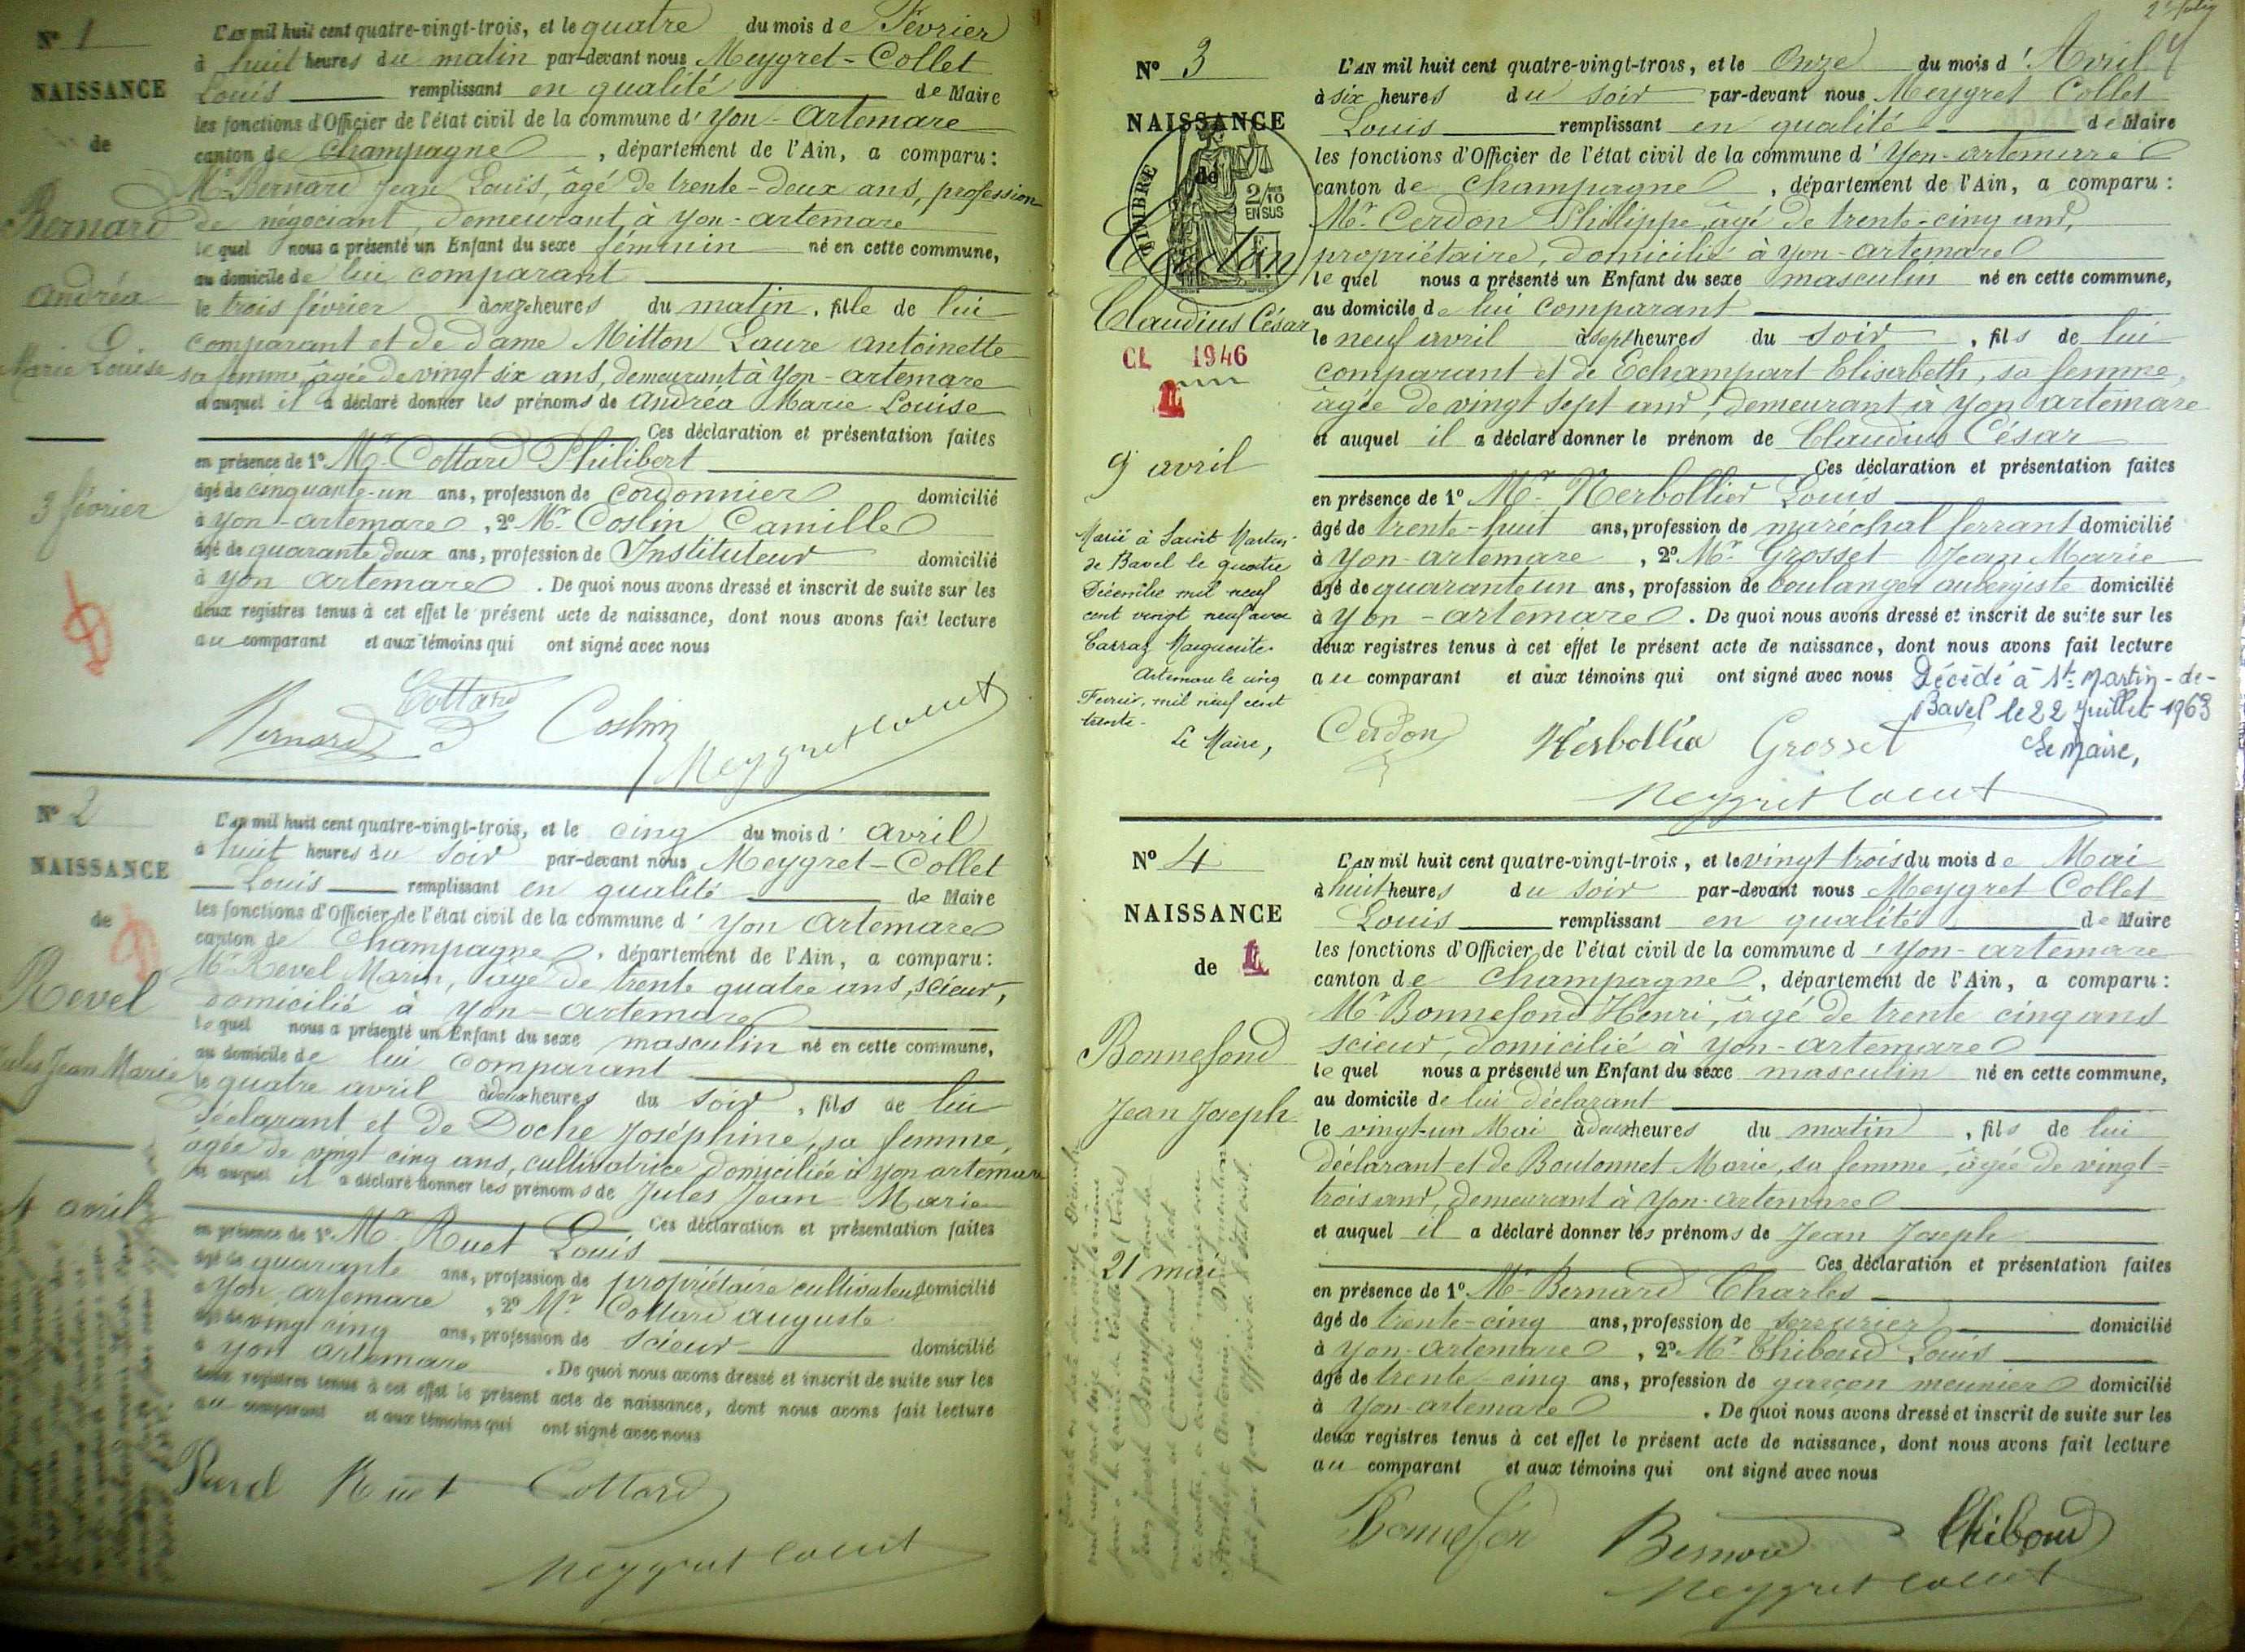 N° 1
NAISSANCE
de
Bernard
Andréa
Marie Louise
3 février
L'AN mil huit cent quatre-vingt-trois, et le quatre du mois de Février
à huit heures du matin par-devant nous Meygret-Collet
Louis remplissant en qualité de Maire
les fonctions d'Officier de l'état civil de la commune d'Yon-Artemare
canton de Champagne, département de l'Ain, a comparu :
Mr Bernard Jean Louis, âgé de trente-deux ans, profession
de négociant, demeurant à Yon-artemare
lequel nous a présenté un Enfant du sexe féminin né en cette commune,
au domicile de lui comparant
le trois février à onze heures du matin, fille de lui
comparant et de dame Mitton Laure antoinette
sa femme, âgée de vingt six ans, demeurant à Yon-artemare
et auquel il a déclaré donner les prénoms de Andréa Marie Louise
Ces déclaration et présentation faites
en présence de 1° Mr Cottard Philibert
âgé de cinquante-un ans, profession de Cordonnier domicilié
à Yon-artemare, 2° Mr Coslin Camille
âgé de quarante deux ans, profession de Instituteur domicilié
à Yon artemare. De quoi nous avons dressé et inscrit de suite sur les
deux registres tenus à cet effet le présent acte de naissance, dont nous avons fait lecture
au comparant et aux témoins qui ont signé avec nous
Bernard Cottard Coslin Meygret Collet
N° 2
NAISSANCE
de
Revel
Jules Jean Marie
4 avril
L'AN mil huit cent quatre-vingt-trois, et le cinq du mois d'avril
à huit heures du soir par-devant nous Meygret-Collet
Louis remplissant en qualité de Maire
les fonctions d'Officier de l'état civil de la commune d'Yon Artemare
canton de Champagne, département de l'Ain, a comparu :
Mr Revel Marin, âgé de trente quatre ans, scieur,
domicilié à Yon-artemare
lequel nous a présenté un Enfant du sexe masculin né en cette commune,
au domicile de lui comparant
le quatre avril à deux heures du soir, fils de lui
déclarant et de Doche Joséphine, sa femme,
agée de vingt cinq ans, cultivatrice domiciliée à Yon artemare
et auquel il a déclaré donner les prénoms de Jules Jean Marie
Ces déclaration et présentation faites
en présence de 1° Mr Ruet Louis
âgé de quarante ans, profession de propriétaire cultivateur domicilié
à Yon artemare, 2° Mr Cottard auguste
âgé de vingt cinq ans, profession de scieur domicilié
à Yon artemare. De quoi nous avons dressé et inscrit de suite sur les
deux registres tenus à cet effet le présent acte de naissance, dont nous avons fait lecture
au comparant et aux témoins qui ont signé avec nous
Ruet Cottard
Meygret Collet
N° 3
NAISSANCE
de
TIMBRE
2/10
EN SUS
Cerdon
Claudius César
CL 1946
9 avril
Marié à Saint Martin
de Bavel le quatre
Décembre mil neuf
cent vingt neuf avec
Carraz Marguerite.
Artemare le cinq
Février mil neuf cent
trente.
Le Maire,
L'AN mil huit cent quatre-vingt-trois, et le Onze du mois d'Avril
à six heures du soir par-devant nous Meygret Collet
Louis remplissant en qualité de Maire
les fonctions d'Officier de l'état civil de la commune d'Yon-artemare
canton de Champagne, département de l'Ain, a comparu :
Mr Cerdon Philippe, âgé de trente-cinq ans,
propriétaire, domicilié à Yon-artemare
lequel nous a présenté un Enfant du sexe masculin né en cette commune,
au domicile de lui comparant
le neuf avril à sept heures du soir, fils de lui
comparant et de Echampart Eliserbeth, sa femme,
âgée de vingt sept ans, demeurant à Yon artemare
et auquel il a déclaré donner le prénom de Claudius César
Ces déclaration et présentation faites
en présence de 1° Mr Herbollier Louis
âgé de trente-huit ans, profession de maréchal ferrant domicilié
à Yon-artemare, 2° Mr Grosset Jean Marie
âgé de quarante un ans, profession de boulanger aubergiste domicilié
à Yon-artemare. De quoi nous avons dressé et inscrit de suite sur les
deux registres tenus à cet effet le présent acte de naissance, dont nous avons fait lecture
au comparant et aux témoins qui ont signé avec nous
Décédé à St Martin-de-
Bavel le 22 Juillet 1963
Le Maire,
Cerdon Herbollier Grosset
Meygret Collet
N° 4
NAISSANCE
de
Bonnefond
Jean Joseph
21 mai
L'AN mil huit cent quatre-vingt-trois, et le vingt trois du mois de Mai
à huit heures du soir par-devant nous Meygret Collet
Louis remplissant en qualité de Maire
les fonctions d'Officier de l'état civil de la commune d'Yon-artemare
canton de Champagne, département de l'Ain, a comparu :
Mr Bonnefond Henri, âgé de trente cinq ans
scieur, domicilié à Yon-artemare
lequel nous a présenté un Enfant du sexe masculin né en cette commune,
au domicile de lui déclarant
le vingt-un Mai à deux heures du matin, fils de lui
déclarant et de Boutonnet Marie, sa femme, âgée de vingt-
trois ans, demeurant à Yon-artemare
et auquel il a déclaré donner les prénoms de Jean Joseph
Ces déclaration et présentation faites
en présence de 1° Mr Bernard Charles
âgé de trente-cinq ans, profession de serrurier domicilié
à Yon-Artemare, 2° Mr Thibaud Louis
âgé de trente-cinq ans, profession de garçon meunier domicilié
à Yon-artemare. De quoi nous avons dressé et inscrit de suite sur les
deux registres tenus à cet effet le présent acte de naissance, dont nous avons fait lecture
au comparant et aux témoins qui ont signé avec nous
Bonnefon Bernard Thiboud
Meygret Collet